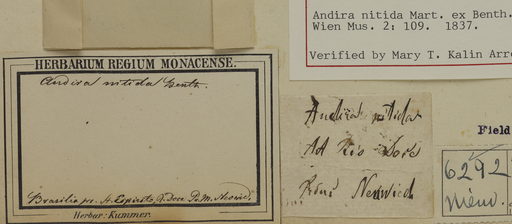 Andira nitida Mart. ex Benth.
Wien Mus. 2: 109. 1837.
Verified by Mary T. Kalin Arr
HERBARIUM REGIUM MONACENSE.
Andira nitida Benth.
Brasilia pr. H. Espirito, R. Doce P. M. Neuwied.
Herbar: Kummer.
Andira nitida
Ad Rio Doce
Neuwied
Field
6292